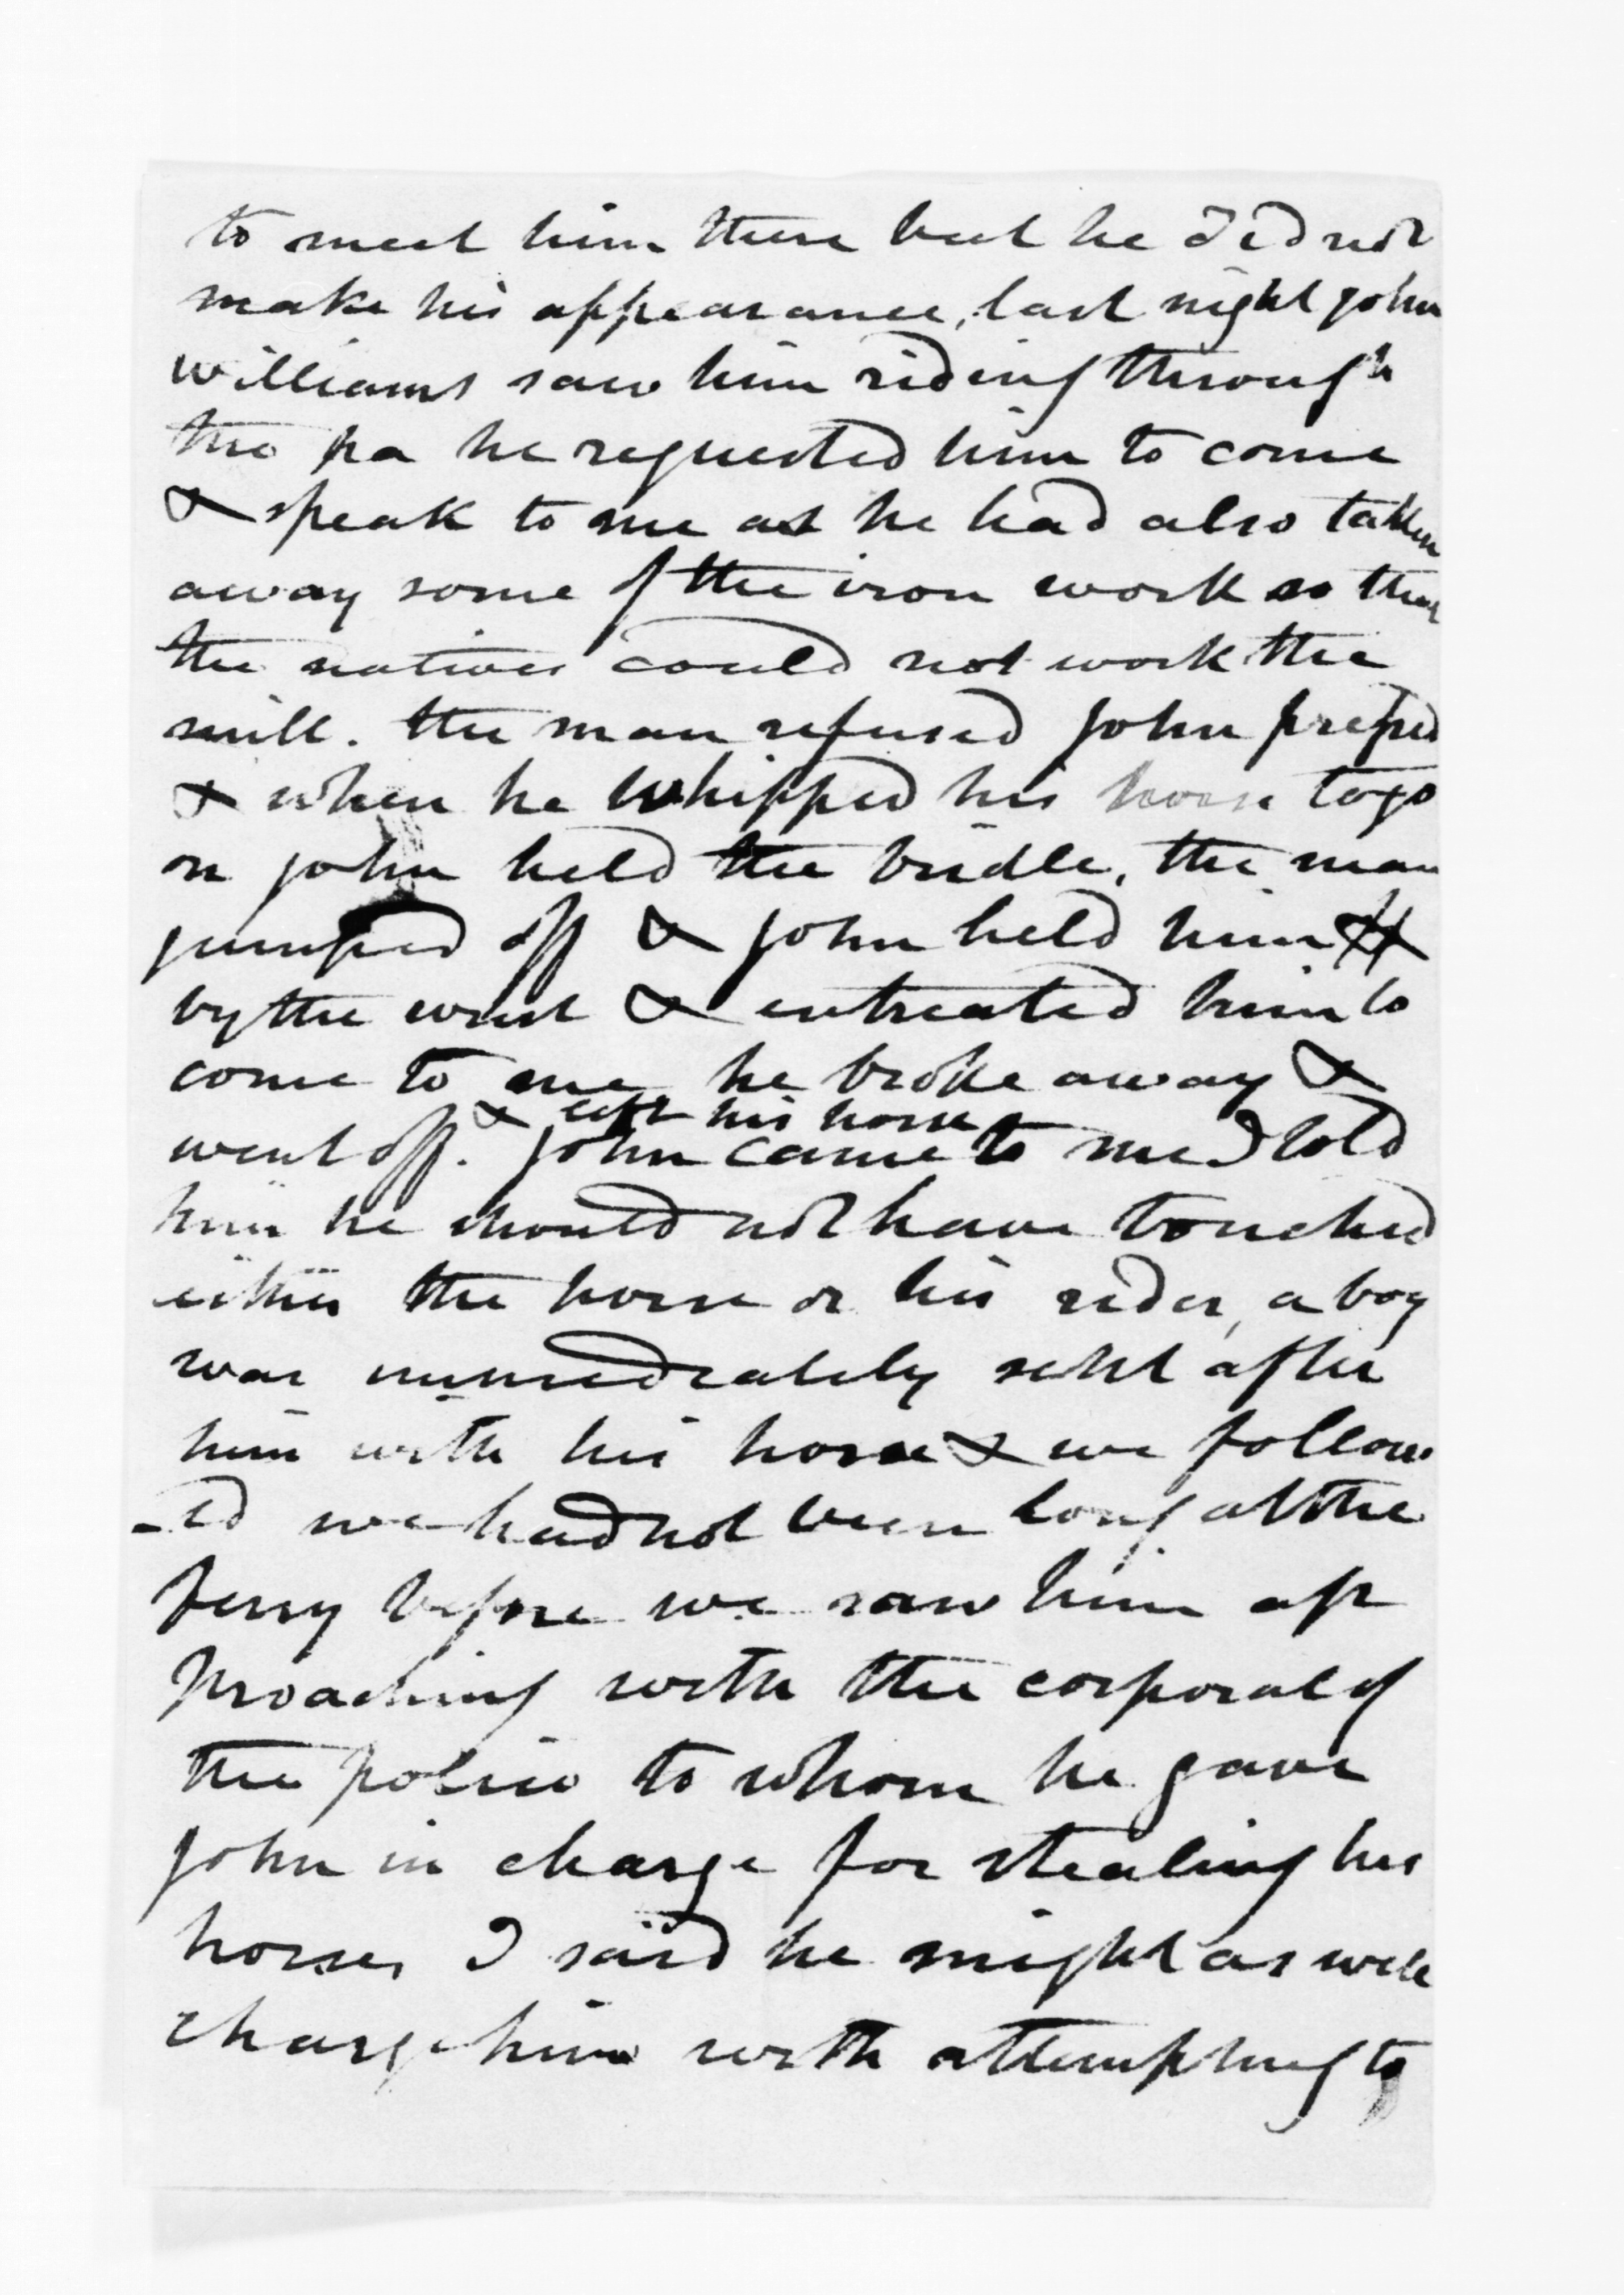 to meet him there but he did not
make his appearance, last night John
Williams saw him riding through
the pa he requested him to come
& speak to me as he had also taken
away some of the iron work so that
the natives could not work the
mill. the man refused John presed
& when he whipped his horse to go
on John held the bridle, the man
jumped off & John held him
by the wrist & entreated him to
come to me he broke away &
went off. & left his horse
John came to me I told
him he should not have touched
either the horse or his rider, a boy
was immediately sent after
him with his horse & we follow
-ed we had not been long at the
ferry before we saw him ap
proaching with the corporal of
the police to whom he gave
John in charge for stealing his
horse, I said he might as well
charge him with attempting to